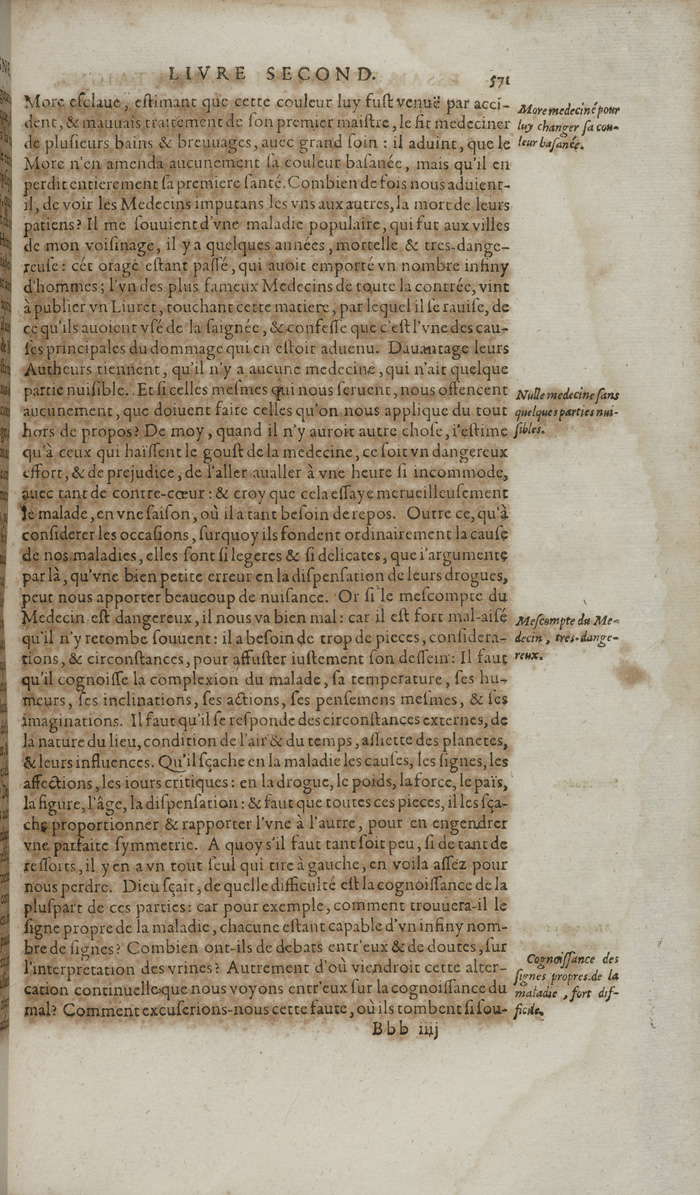 LIVRE SECOND.
571
More eſclaue, eſtimant que cette couleur luy fuſt venuë par acci-
dent, & mauuais traittement de ſon premier maiſtre, le fit medeciner
de pluſieurs bains & breuuages, auec grand ſoin : il aduint, que le
More n'en amenda aucunement ſa couleur baſanée, mais qu'il en
perdit entierement ſa premiere ſanté. Combien de fois nous aduient-
il, de voir les Medecins imputans les vns aux autres, la mort de leurs
patiens? Il me ſouuient d'vne maladie populaire, qui fut aux villes
de mon voiſinage, il y a quelques années, mortelle & tres-dange-
reuſe : cét orage eſtant paſſé, qui auoit emporté vn nombre infiny
d'hommes; l'vn des plus fameux Medecins de toute la contrée, vint
à publier vn Liuret, touchant cette matiere, par lequel il ſe rauiſe, de
ce qu'ils auoient vſé de la ſaignée, & confeſſe que c'eſt l'vne des cau-
ſes principales du dommage qui en eſtoit aduenu. Dauantage leurs
Autheurs tiennent, qu'il n'y a aucune medecine, qui n'ait quelque
partie nuiſible. Et ſi celles meſmes qui nous ſeruent, nous offencent
aucunement, que doiuent faire celles qu'on nous applique du tout
hors de propos? De moy, quand il n'y auroit autre choſe, i'eſtime
qu'à ceux qui haïſſent le gouſt de la medecine, ce ſoit vn dangereux
effort, & de prejudice, de l'aller aualler à vne heure ſi incommode,
auec tant de contre-cœur : & croy que cela eſſaye merueilleuſement
le malade, en vne ſaiſon, où il a tant beſoin de repos. Outre ce, qu'à
conſiderer les occaſions, ſurquoy ils fondent ordinairement la cauſe
de nos maladies, elles ſont ſi legeres & ſi delicates, que i'argumente
par là, qu'vne bien petite erreur en la diſpenſation de leurs drogues,
peut nous apporter beaucoup de nuiſance. Or ſi le meſcompte du
Medecin eſt dangereux, il nous va bien mal : car il eſt fort mal-aiſé
qu'il n'y retombe ſouuent : il a beſoin de trop de pieces, conſidera-
tions, & circonſtances, pour affuſter iuſtement ſon deſſein : Il faut
qu'il cognoiſſe la complexion du malade, ſa temperature, ſes hu-
meurs, ſes inclinations, ſes actions, ſes penſemens meſmes, & ſes
imaginations. Il faut qu'il ſe reſponde des circonſtances externes, de
la nature du lieu, condition de l'air & du temps, aſſiette des planetes,
& leurs influences. Qu'il ſçache en la maladie les cauſes, les ſignes, les
affections, les iours critiques : en la drogue, le poids, la force, le païs,
la figure, l'âge, la diſpenſation : & faut que toutes ces pieces, il les ſça-
che proportionner & rapporter l'vne à l'autre, pour en engendrer
vne parfaite ſymmetrie. A quoy s'il faut tant ſoit peu, ſi de tant de
reſſorts, il y en a vn tout ſeul qui tire à gauche, en voila aſſez pour
nous perdre. Dieu ſçait, de quelle difficulté eſt la cognoiſſance de la
pluſpart de ces parties : car pour exemple, comment trouuera-il le
ſigne propre de la maladie, chacune eſtant capable d'vn infiny nom-
bre de ſignes? Combien ont-ils de debats entr'eux & de doutes, ſur
l'interpretation des vrines? Autrement d'où viendroit cette alter-
cation continuelle que nous voyons entr'eux ſur la cognoiſſance du
mal? Comment excuſerions-nous cette faute, où ils tombent ſi ſou-
Bbb iiij
More medeciné pour
luy changer ſa cou-
leur baſanée.
Nulle medecine ſans
quelques parties nui-
ſibles.
Meſcompte du Me-
decin, tres-dange-
reux.
Cognoiſſance des
ſignes propres de la
maladie, fort dif-
ficile.